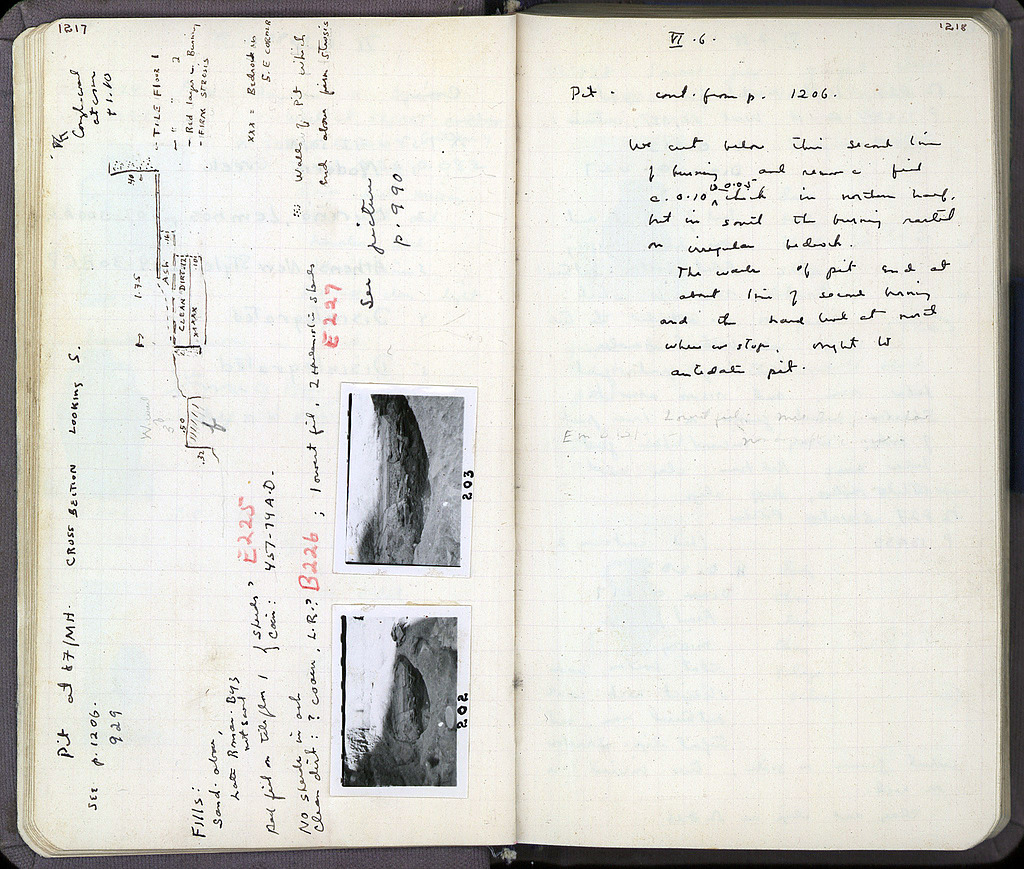 1217
Pit at 67/MH. CROSS SECTION LOOKING S.
SEE p. 1206.
929
at corner
+1.10
.40
1.75
.61
ASH
CLEAN DIRT
.50
.32
- TILE FLOOR 1
- " " 2
- Red layer = Burning
- FIRM STEREO
XXX = Bedrock in
S.E CORNER
= Walls of Pit which
end above firm
See picture
p. 990
Fills:
Sand. above,
Late Roman. Byz
not sand
Red fill on tile floor 1 { sherds? E225
coin: 457-74 A.D.
No sherds in ash
Clean dirt: ? coarse, L.R.? B226 ; lowest fill, 2 sherds
E227
203
202
1218
VI.6.
Pit - cont. from p. 1206.
We cut below this second line
of burning and remove fill
c. 0.10 to 0.05 thick in northern half,
but in south the burning rested
on irregular bedrock.
The walls of pit end at
about line of second burning
and the hard level at north
where we stop, ought to
antedate pit.